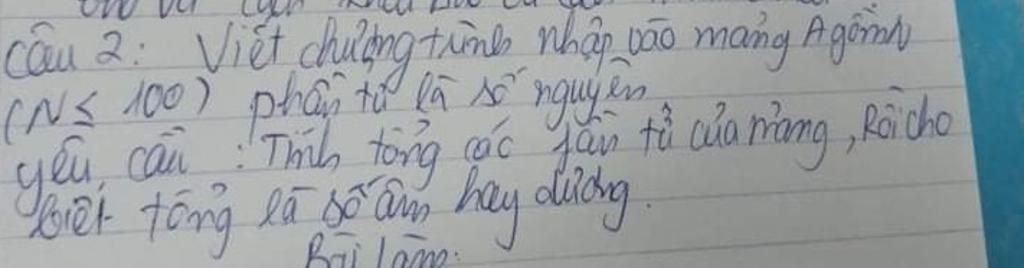 Câu 2: Viết chương trình nhập vào mảng A gồm N
(N ≤ 100) phần tử là số nguyên
yêu cầu : Tính tổng các phần tử của mảng, Rồi cho
biết tổng là số âm hay dương.
Bài làm: